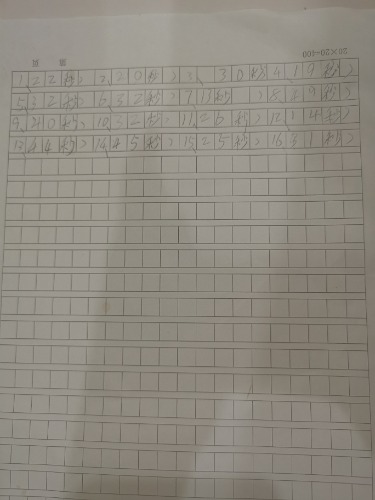 20×20=400
1、22秒，2、20秒，3、30秒，4、19秒，
5、32秒，6、32秒，7、17秒，8、39秒，
9、40秒，10、32秒，11、26秒，12、14秒，
13、44秒，14、45秒，15、25秒，16、31秒，